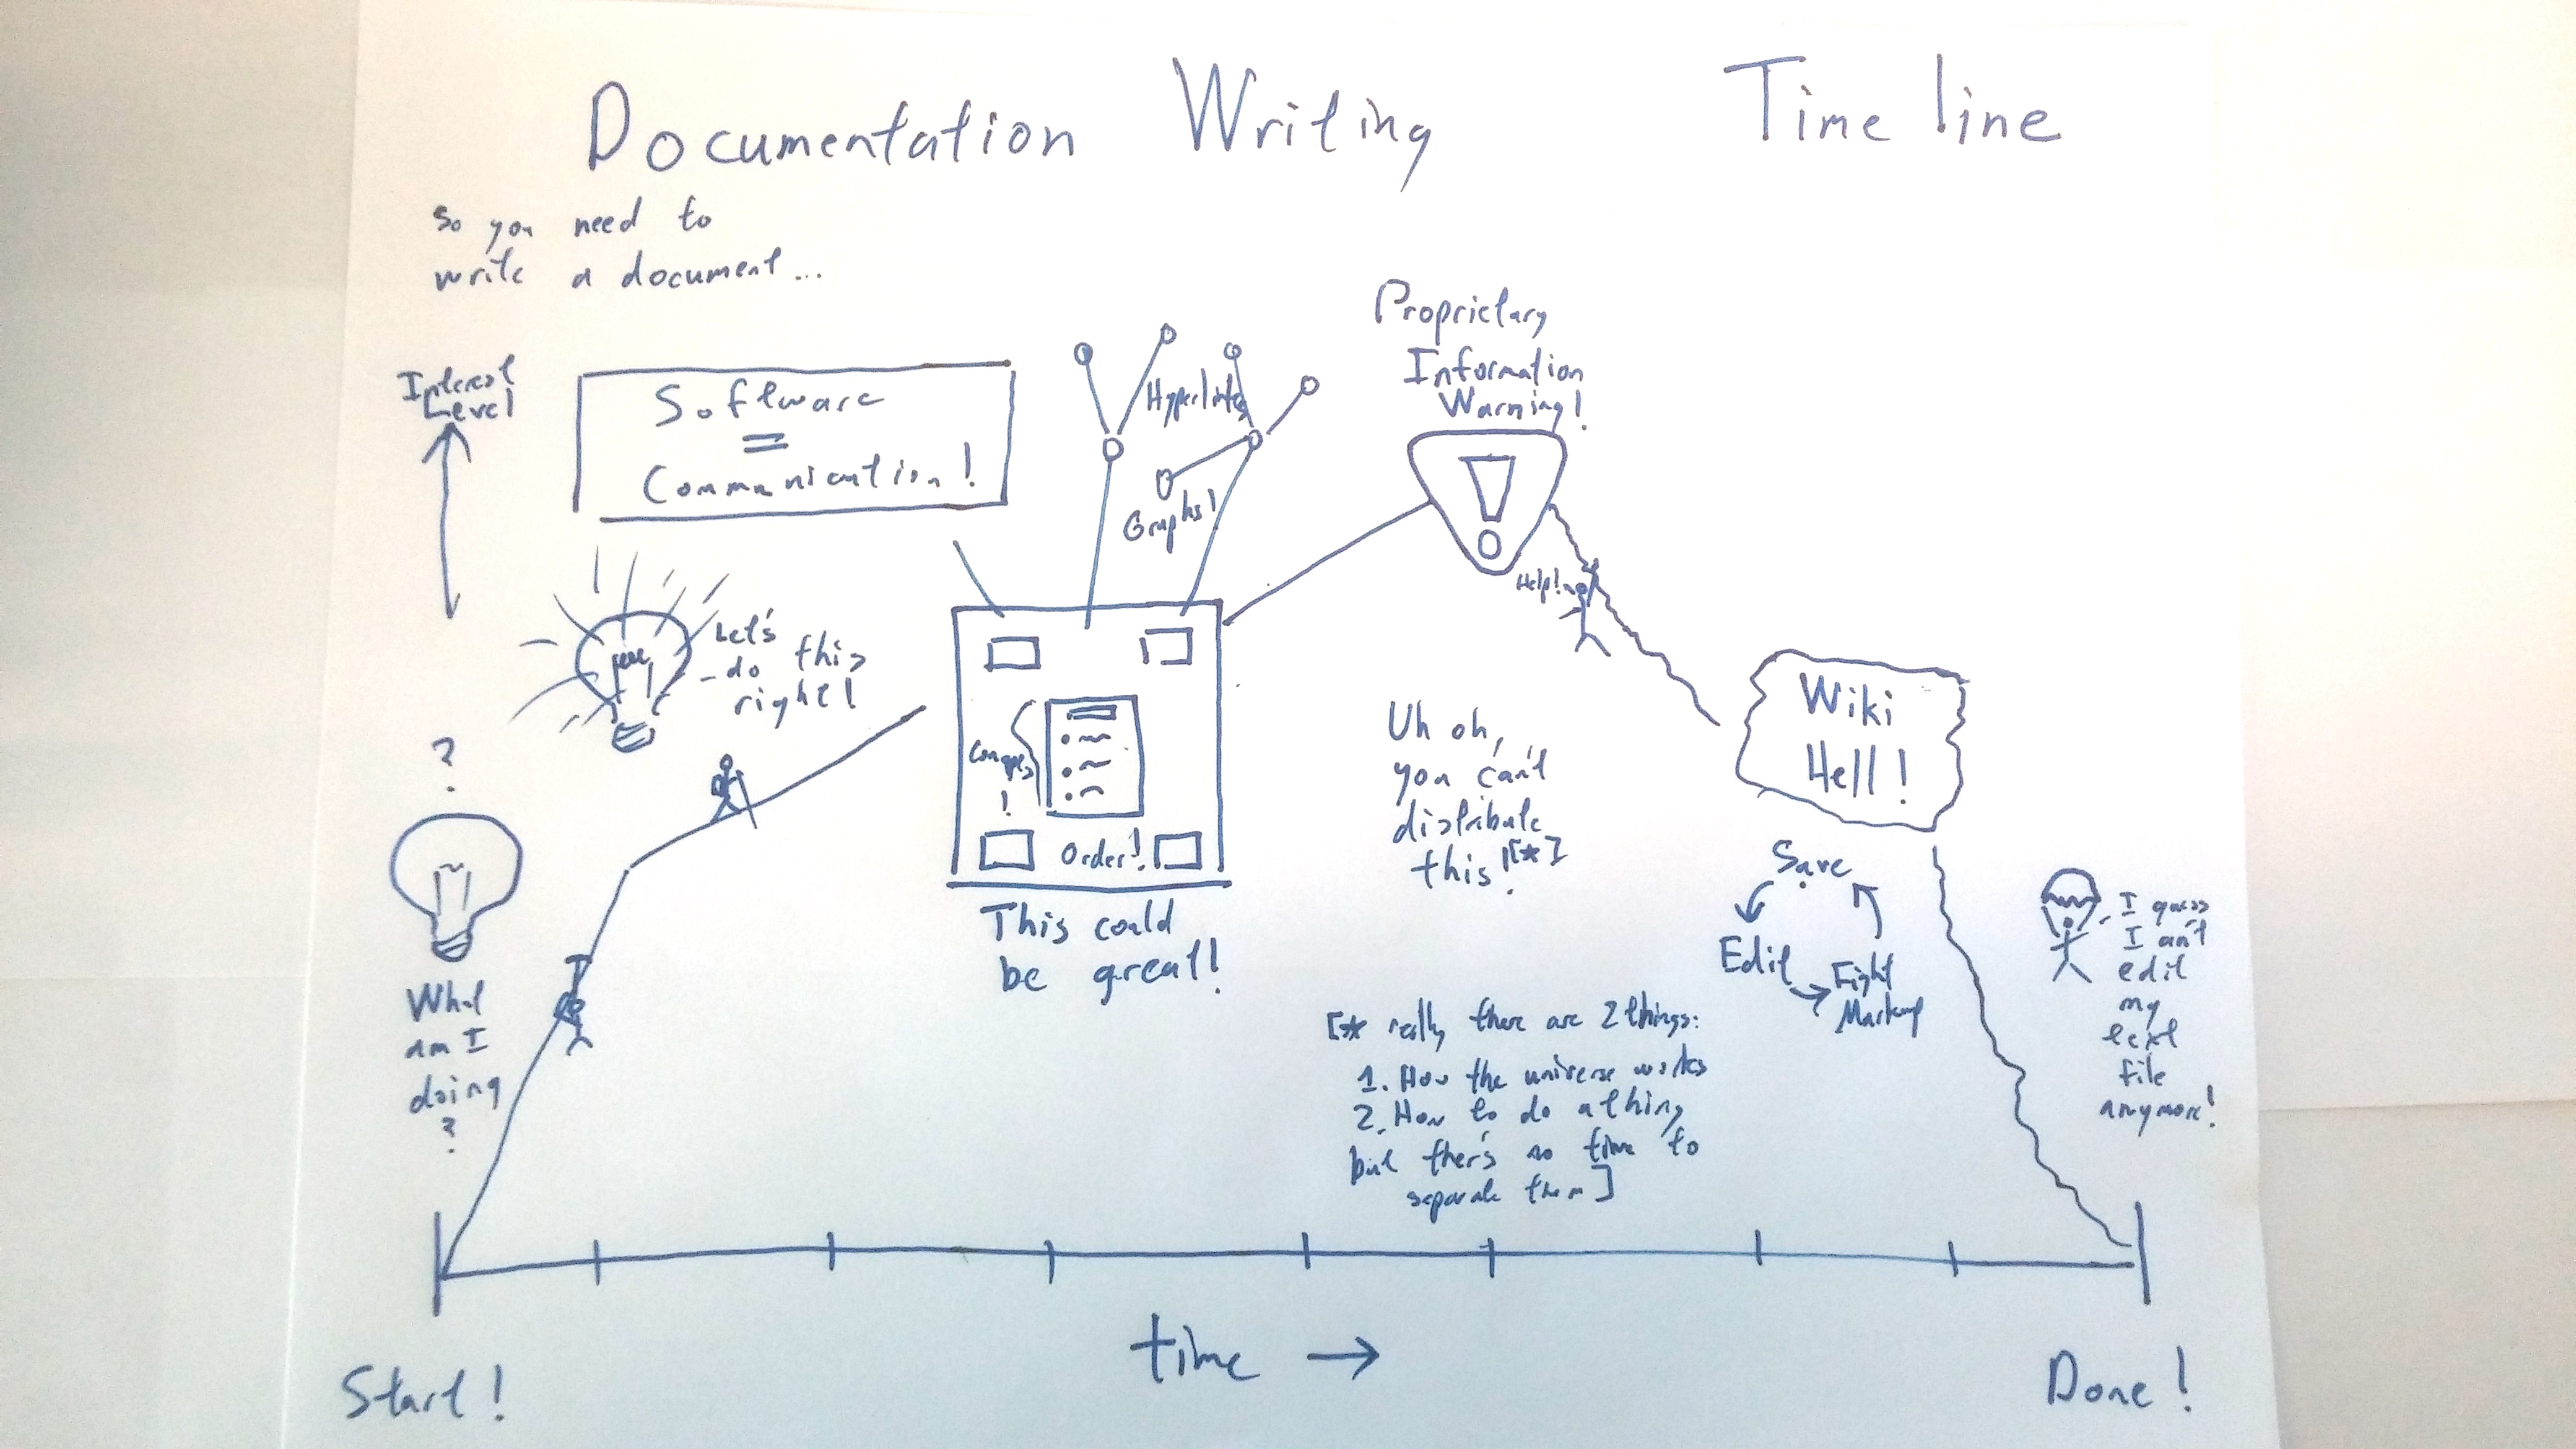 Documentation Writing Time line
so you need to
write a document...
Interest
Level
Software
=
Communication!
Let's
do this
right!
?
What
am I
doing
?
Graphs!
Order!
This could
be great!
Proprietary
Information
Warning!
Help!
Uh oh,
you can't
distribute
this![*]
[* really there are 2 things:
1. How the universe works
2. How to do a thing
but there's no time to
separate them]
Wiki
Hell!
Save
Edit
Fight
Markup
I guess
I can't
edit
my
text
file
anymore!
time →
Start!
Done!